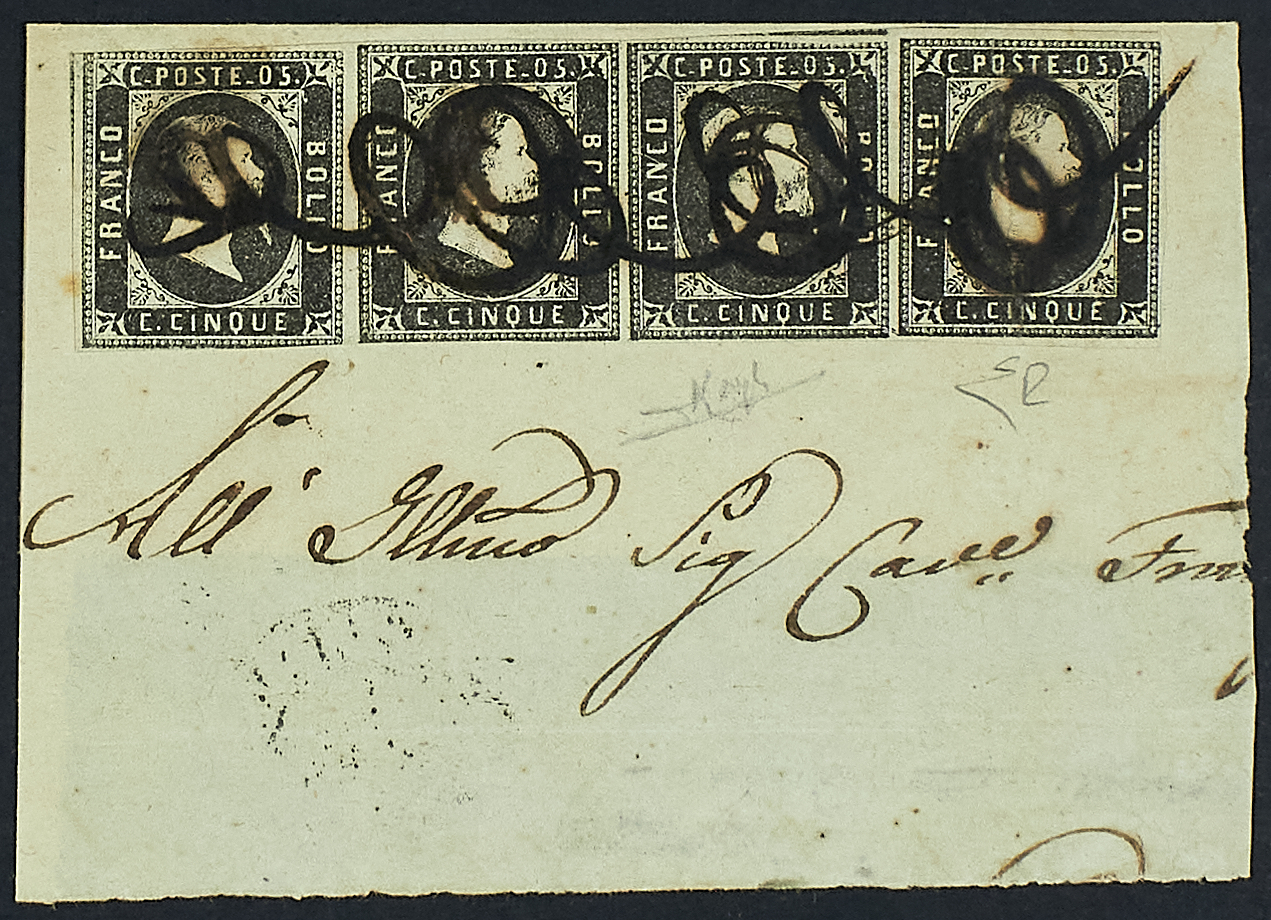 C-POSTE-05. C-POSTE-05. C-POSTE-05. C-POSTE-05.
FRANCO BOLLO FRANCO BOLLO FRANCO BOLLO FRANCO BOLLO
C. CINQUE C. CINQUE C. CINQUE C. CINQUE
ED
All' Illmo Sig Cave